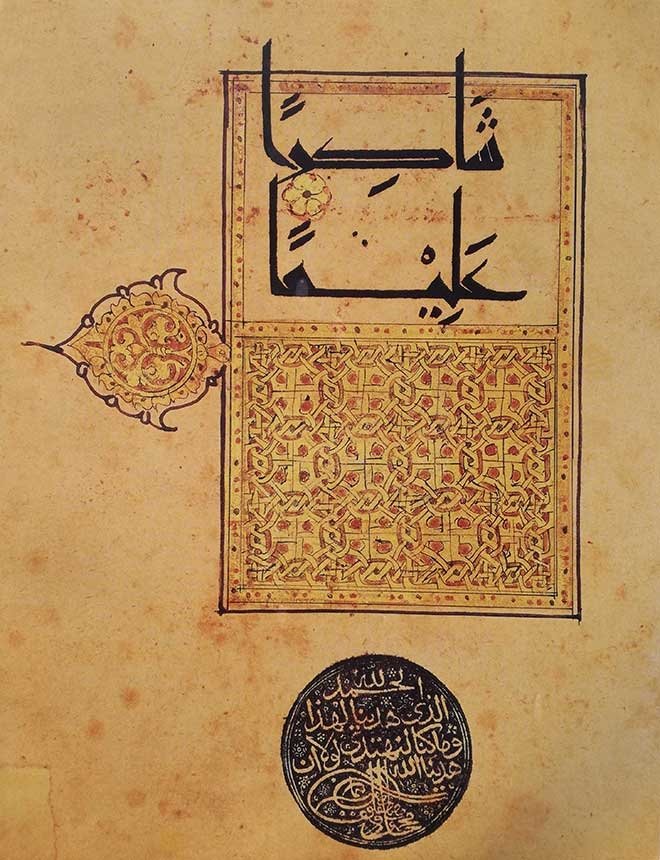 شَاكِرًا
عَلِيْمًا
الحمد لله
الذى هدينا لهذا
وما كنا لنهتدى لولا ان
هدينا الله